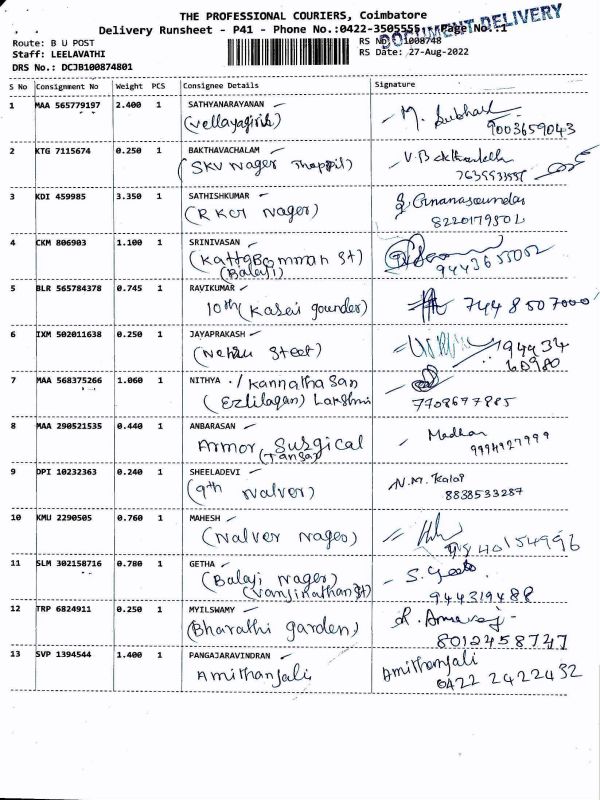 THE PROFESSIONAL COURIERS, Coimbatore
DOCUMENT DELIVERY
Delivery Runsheet - P41 - Phone No.:0422-3505555, Page No.:1
Route: B U POST
RS No: 1008748
Staff: LEELAVATHI
RS Date: 27-Aug-2022
DRS No.: DCJB100874801
S No Consignment No Weight PCS Consignee Details Signature
1 MAA 565779197 2.400 1 SATHYANARAYANAN
(Vellayagiri) M. Subhash
9003659043
2 KTG 7115674 0.250 1 BAKTHAVACHALAM
(SKV Nager Thoppil)
3 KDI 459985 3.350 1 SATHISHKUMAR
(RKCR Nager) 8220179502
4 CKM 806903 1.100 1 SRINIVASAN
(Kattabomman St) 9443655002
(Balaji)
5 BLR 565784378 0.745 1 RAVIKUMAR
10th (Kasai gounder) 7448507000
6 IXM 502011638 0.250 1 JAYAPRAKASH
(Nehru Steet) 94434
60980
7 MAA 568375266 1.060 1 NITHYA ./ Kannathasan
(Ezhilagan) Lakshmi 7708677885
8 MAA 290521535 0.440 1 ANBARASAN
Armor, Surgical Madhan
(Tansa) 9994927999
9 DPI 10232363 0.240 1 SHEELADEVI
(9th Nalver) N.M. Kalai
8838533287
10 KMU 2290505 0.760 1 MAHESH
(Nalver Nager)
11 SLM 302158716 0.780 1 GETHA
(Balaji Nager) S. Geetha
(Vanjinathan St) 944319488
12 TRP 6824911 0.250 1 MYILSWAMY
(Bharathi garden) 8012458747
13 SVP 1394544 1.400 1 PANGAJARAVINDRAN
Amithanjali Amithanjali
0422 2422452